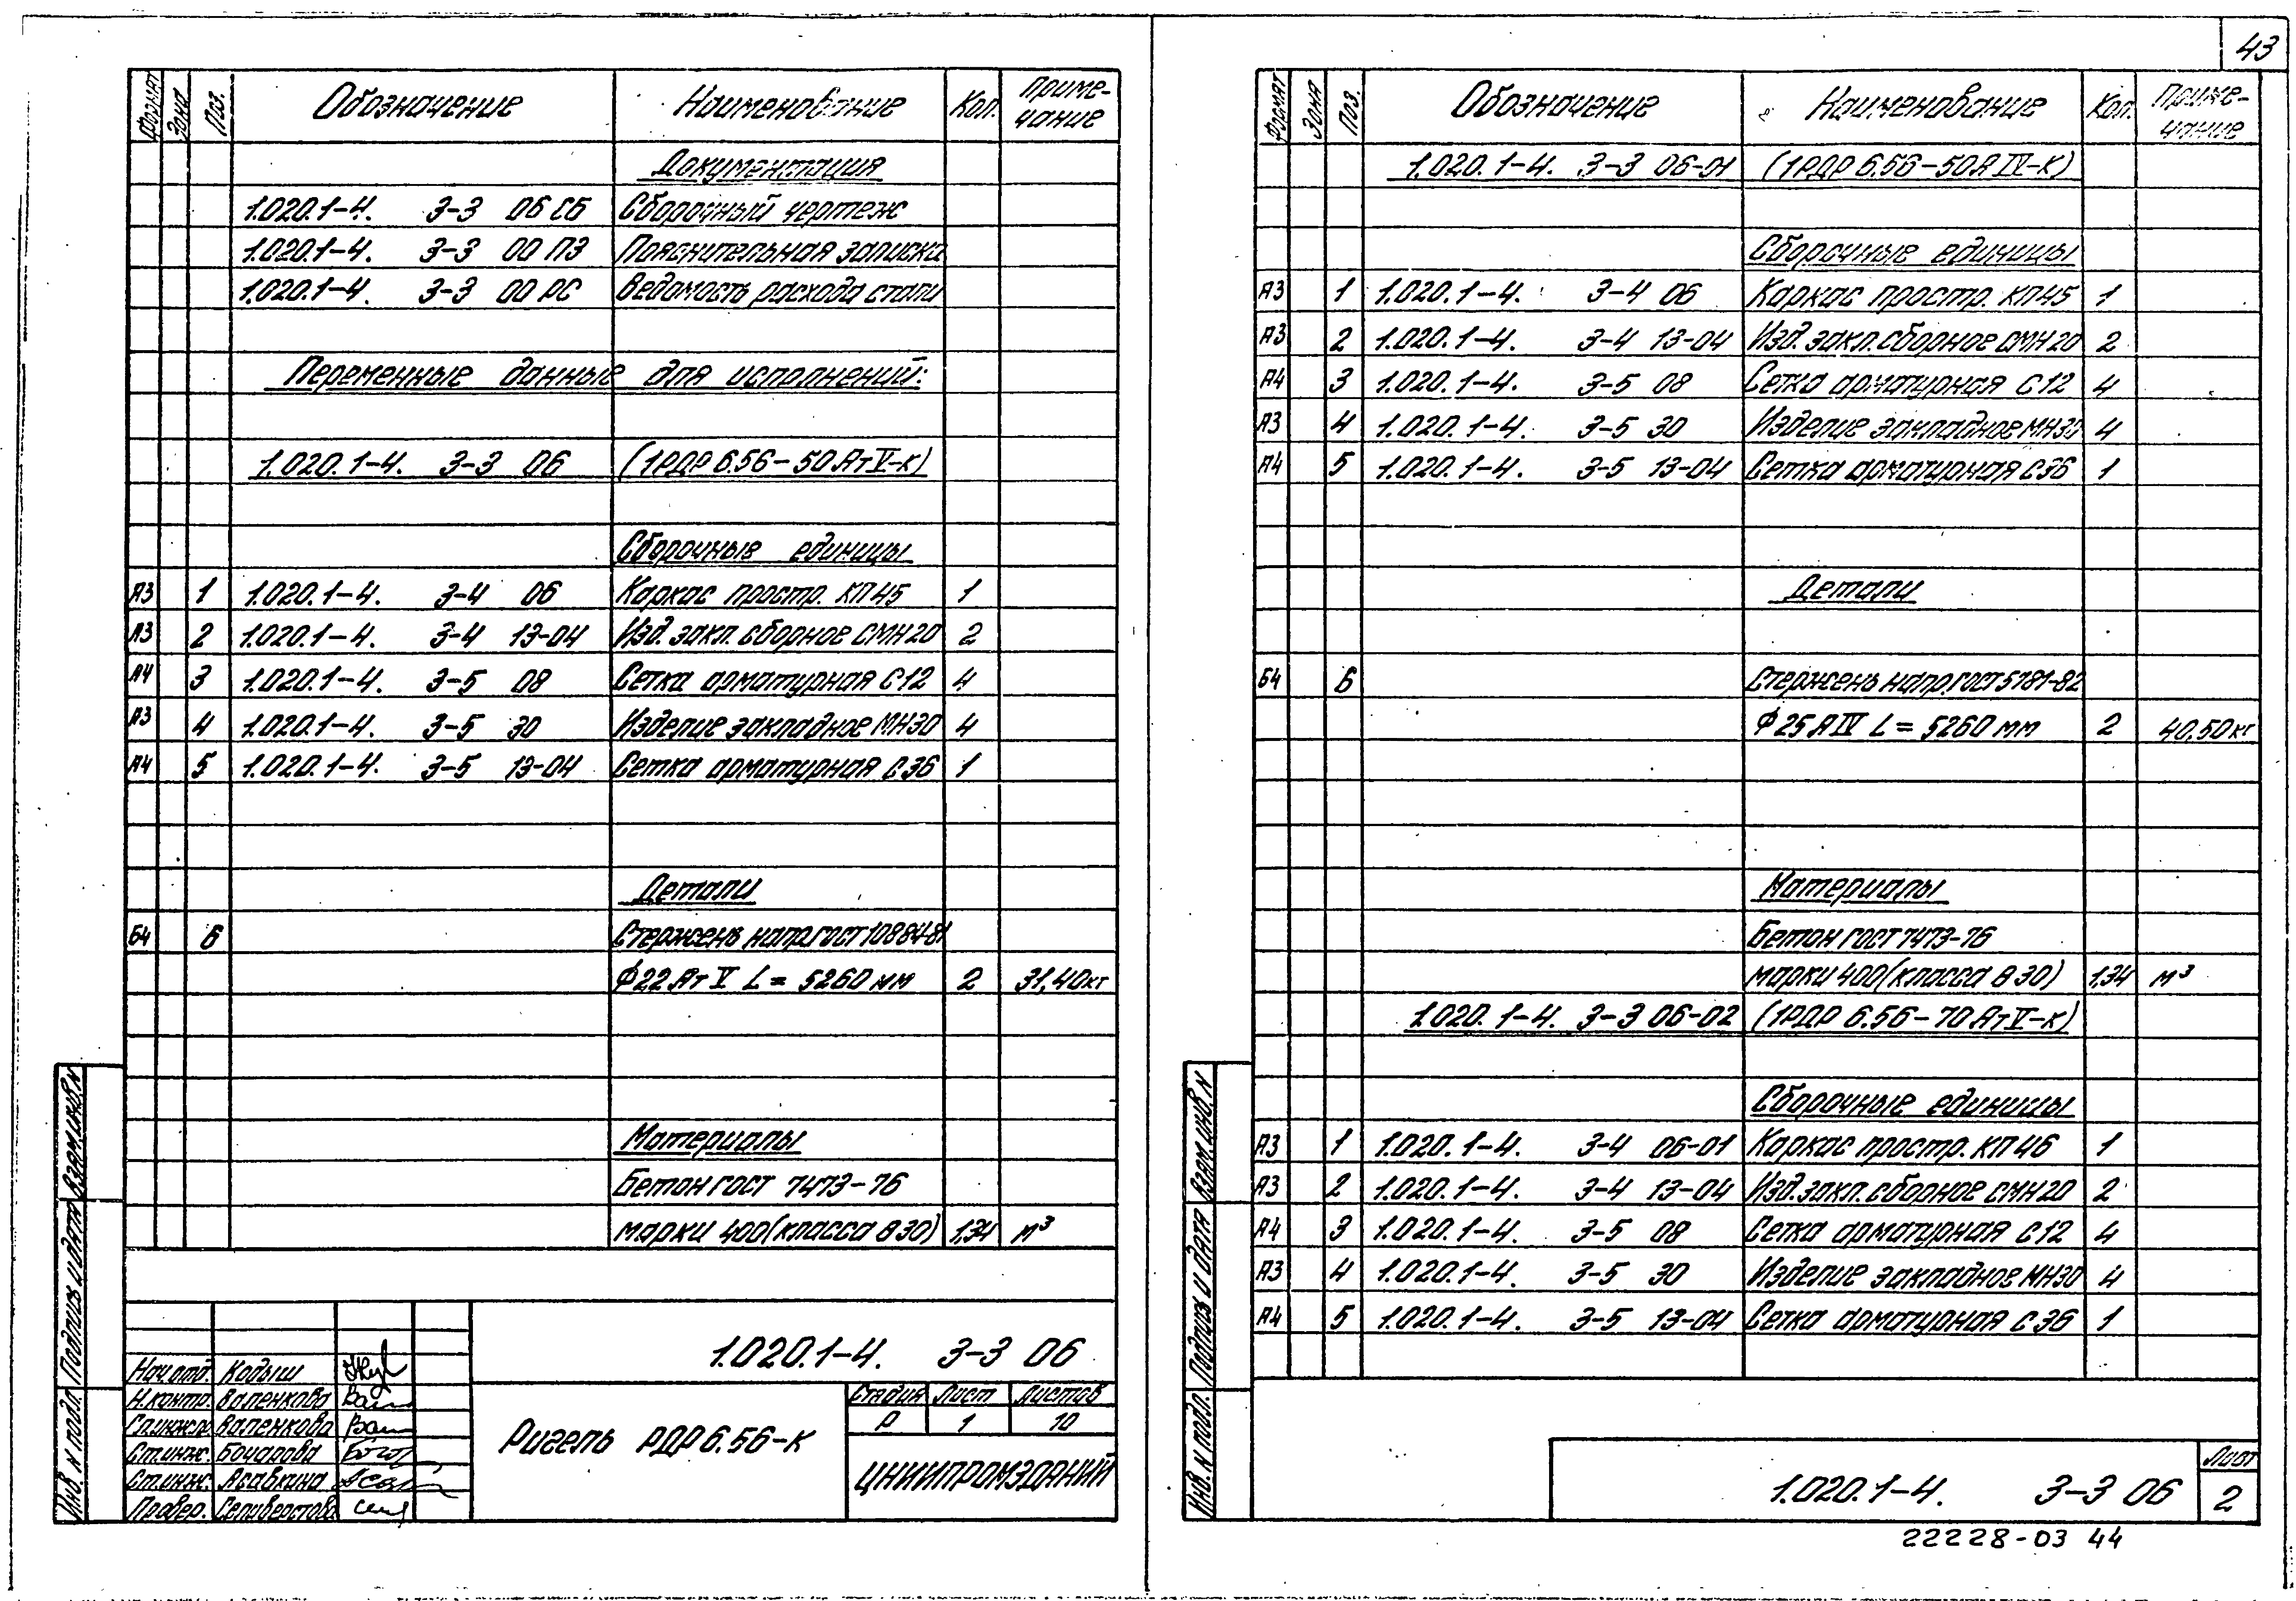 43
Формат Зона Поз. Обозначение Наименование Кол. Приме-
чание
Документация
1.020.1-4. 3-3 06 СБ Сборочный чертеж
1.020.1-4. 3-3 00 ПЗ Пояснительная записка
1.020.1-4. 3-3 00 РС Ведомость расхода стали
Переменные данные для исполнений:
1.020.1-4. 3-3 06 (1РДР 6.56-50 Ат V-К)
Сборочные единицы
А3 1 1.020.1-4. 3-4 06 Каркас простр. КП45 1
А3 2 1.020.1-4. 3-4 13-04 Изд. закл. сборное СМН20 2
А4 3 1.020.1-4. 3-5 08 Сетка арматурная С12 4
А3 4 1.020.1-4. 3-5 30 Изделие закладное МН30 4
А4 5 1.020.1-4. 3-5 13-04 Сетка арматурная С36 1
Детали
Б4 6 Стержень напр. ГОСТ 10884-81
Ф22 Ат V L = 5260 мм 2 31,40кг
Материалы
Бетон ГОСТ 7473-76
марки 400 (класса В30) 1,34 м³
Инв. N подл. Подпись и дата Взам. инв. N
1.020.1-4. 3-3 06
Нач. отд. Кодыш
Н. контр. Валенкова
Гл. инж. пр. Валенкова
Ст. инж. Бочарова
Ст. инж. Асавкина
Провер. Селиверстова
Ригель РДР 6.56-К
Стадия Лист Листов
Р 1 10
ЦНИИПРОМЗДАНИЙ
Формат Зона Поз. Обозначение Наименование Кол. Приме-
чание
1.020.1-4. 3-3 06-01 (1РДР 6.56-50А IV-К)
Сборочные единицы
А3 1 1.020.1-4. 3-4 06 Каркас простр. КП45 1
А3 2 1.020.1-4. 3-4 13-04 Изд. закл. сборное СМН20 2
А4 3 1.020.1-4. 3-5 08 Сетка арматурная С12 4
А3 4 1.020.1-4. 3-5 30 Изделие закладное МН30 4
А4 5 1.020.1-4. 3-5 13-04 Сетка арматурная С36 1
Детали
Б4 6 Стержень напр. ГОСТ 5781-82
Ф25 А IV L = 5260 мм 2 40,50кг
Материалы
Бетон ГОСТ 7473-76
марки 400 (класса В30) 1,34 м³
1.020.1-4. 3-3 06-02 (1РДР 6.56-70 Ат V-К)
Сборочные единицы
А3 1 1.020.1-4. 3-4 06-01 Каркас простр. КП46 1
А3 2 1.020.1-4. 3-4 13-04 Изд. закл. сборное СМН20 2
А4 3 1.020.1-4. 3-5 08 Сетка арматурная С12 4
А3 4 1.020.1-4. 3-5 30 Изделие закладное МН30 4
А4 5 1.020.1-4. 3-5 13-04 Сетка арматурная С36 1
Инв. N подл. Подпись и дата Взам. инв. N
1.020.1-4. 3-3 06
Лист
2
22228-03 44